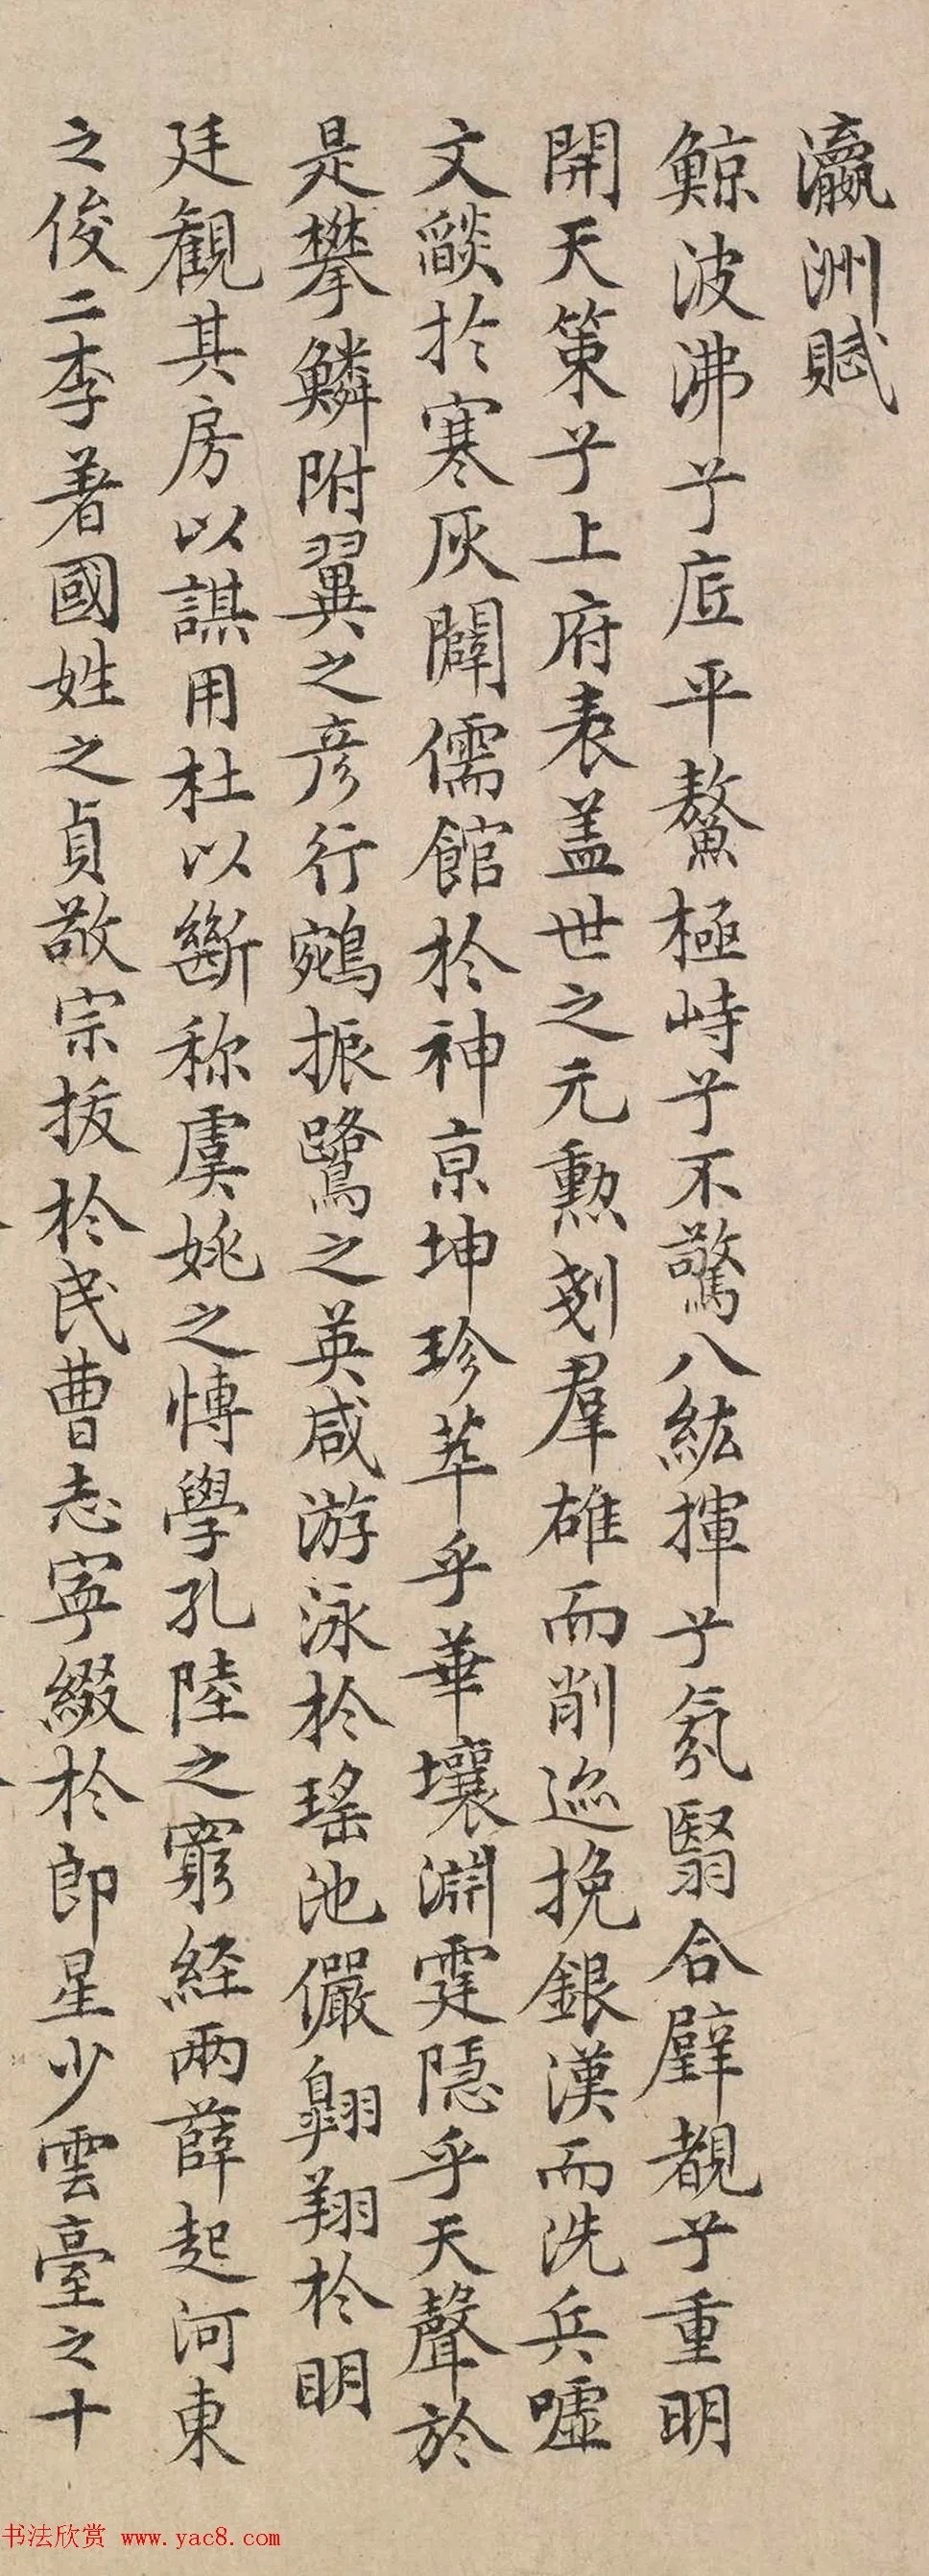 瀛洲賦
鯨波沸兮底平鰲極峙兮不驚八紘揮兮氛翳合璧覩兮重明
開天策兮上府表蓋世之元勲剗羣雄而削迹挽銀漢而洗兵噓
文燄於寒灰闢儒館於神京坤珍萃乎華壤淵霆隱乎天聲於
是攀鱗附翼之彦行鵷振鷺之英咸游泳於瑤池儼翱翔於明
廷觀其房以謀用杜以斷称虞姚之愽學孔陸之窮経兩薛起河東
之俊二李著國姓之貞敬宗拔於民曹志寧綴於郎星少雲臺之十
书法欣赏 www.yac8.com